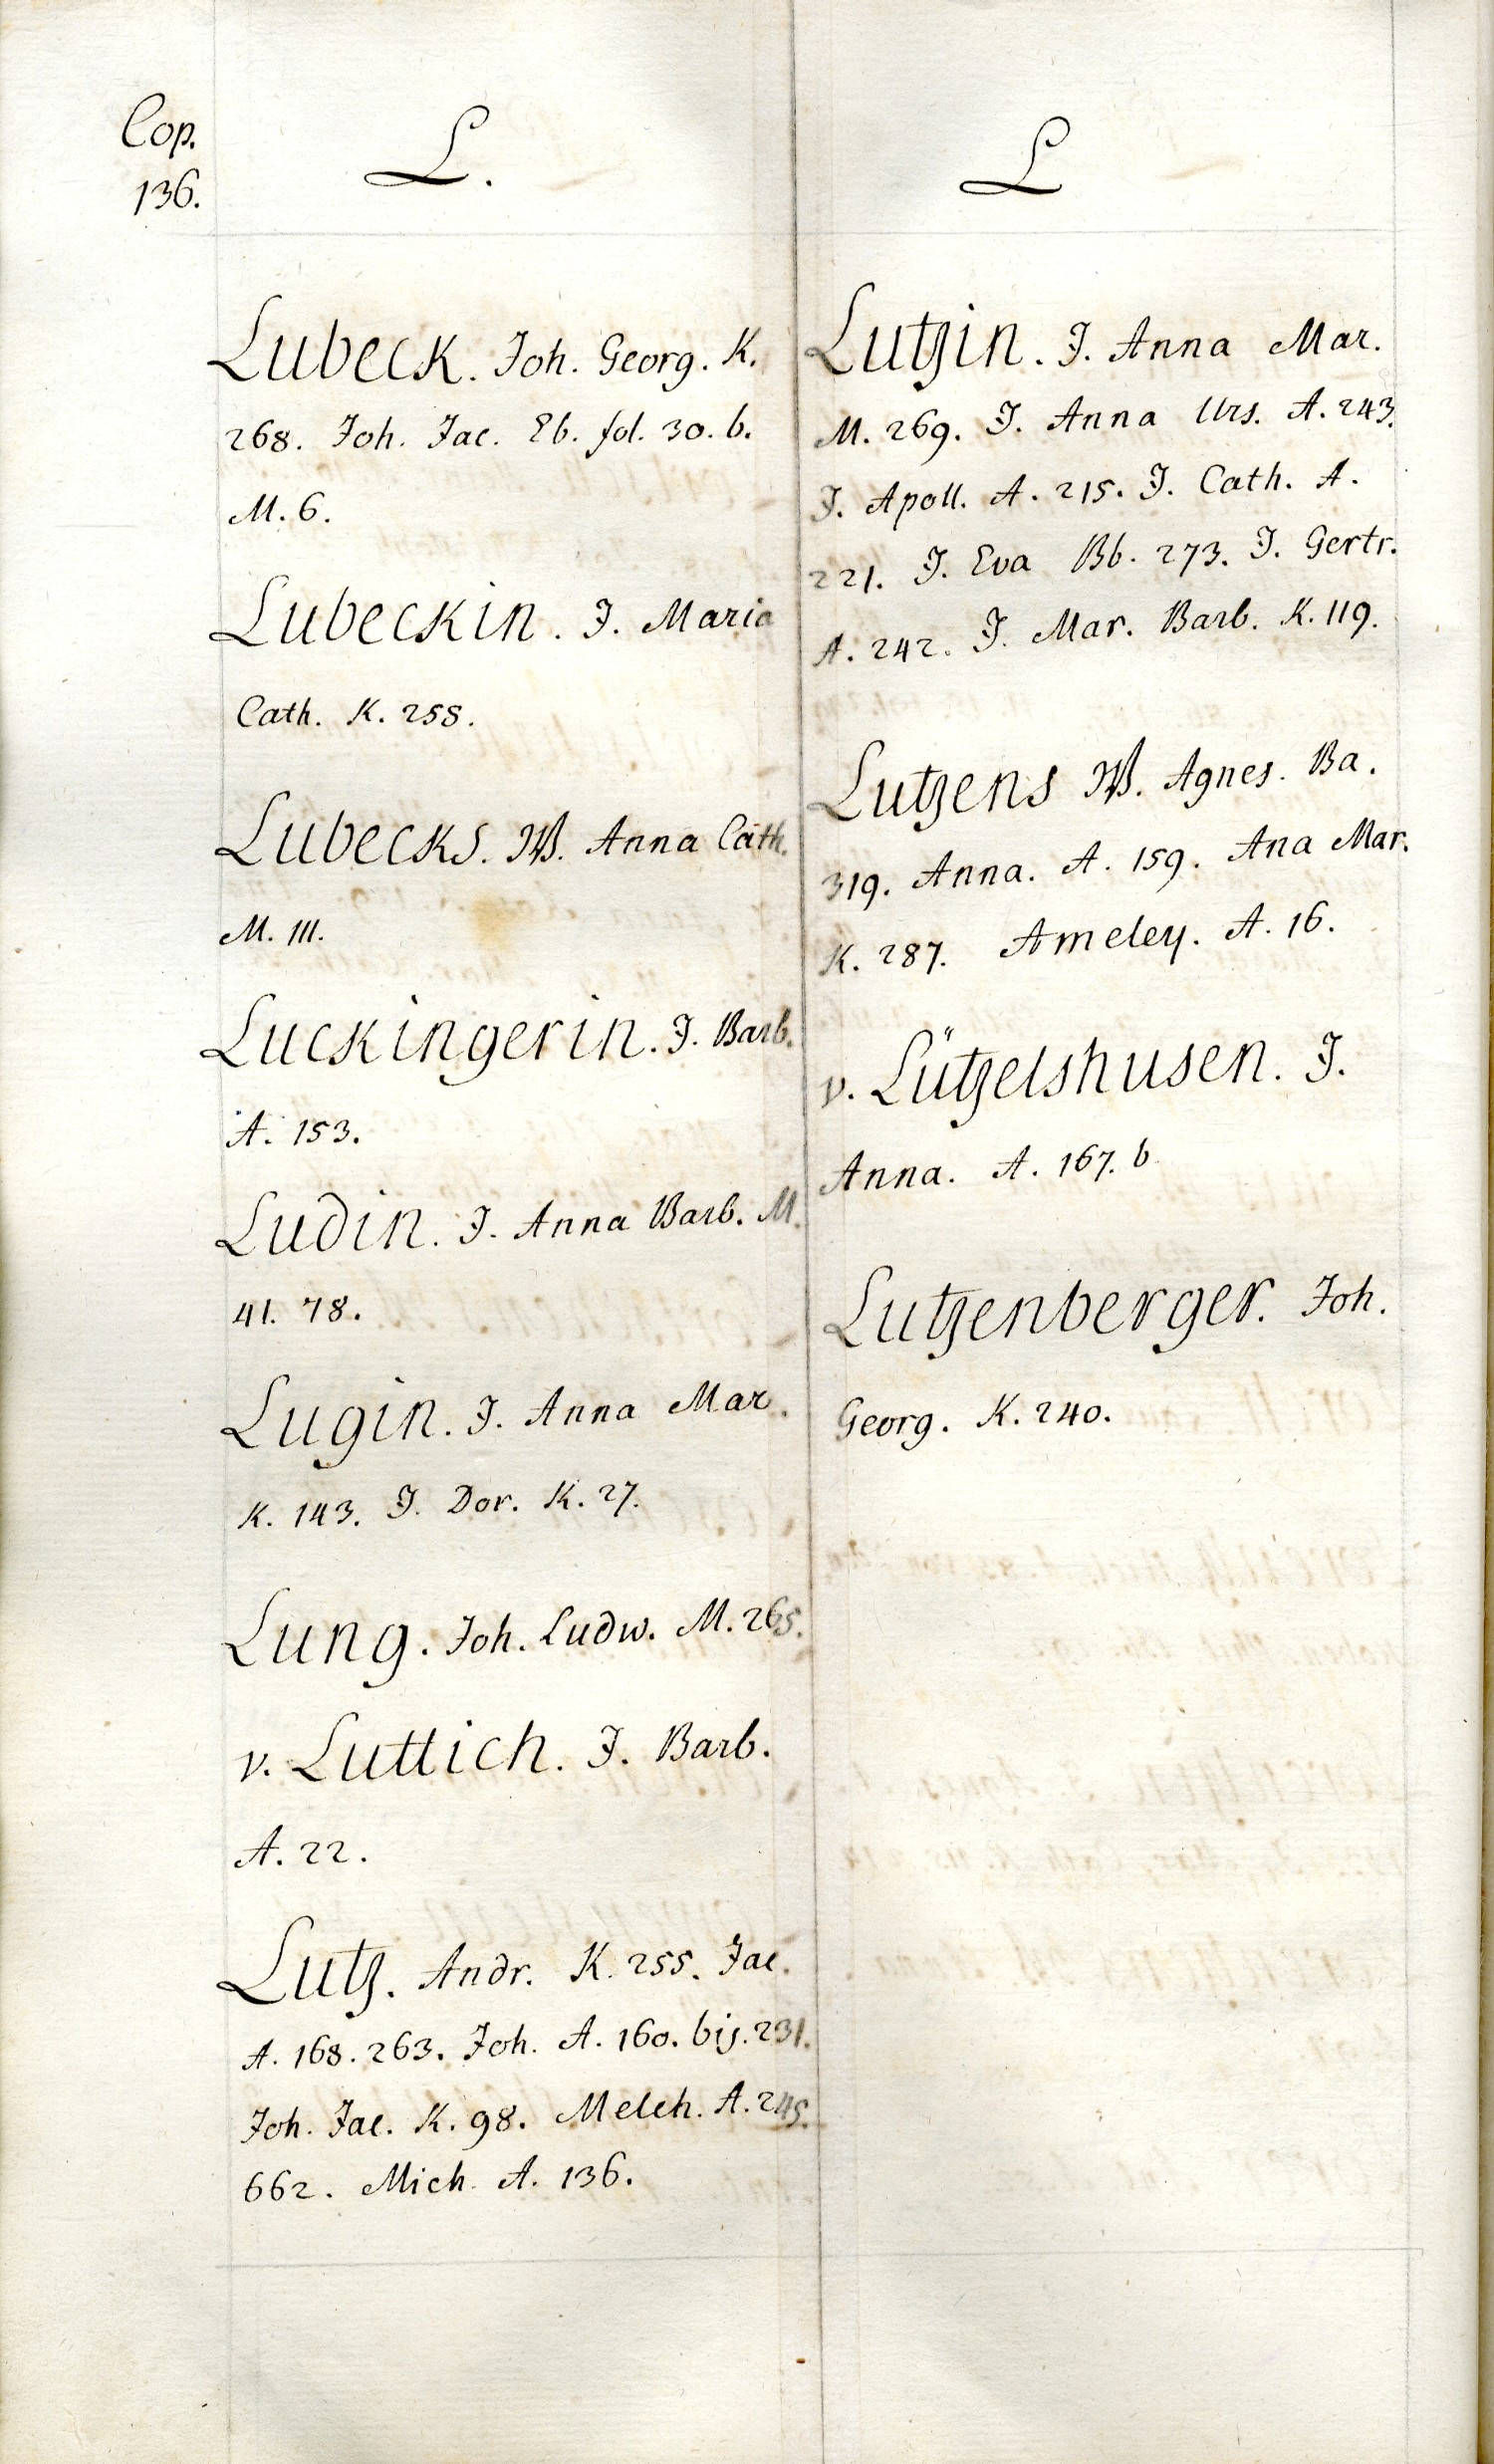 Cop.
136.
L.
Lubeck. Joh. Georg. K.
268. Joh. Jac. Eb. fol. 30. b.
M. 6.
Lubeckin. J. Maria
Cath. K. 258.
Lubecks. W. Anna Cath.
M. 111.
Luckingerin. J. Barb.
A. 153.
Ludin. J. Anna Barb. M.
41. 78.
Lugin. J. Anna Mar.
K. 143. J. Dor. K. 27.
Lung. Joh. Ludw. M. 265.
v. Luttich. J. Barb.
A. 22.
Lutz. Andr. K. 255. Jac.
A. 168. 263. Joh. A. 160. bis. 231.
Joh. Jac. K. 98. Melch. A. 245.
662. Mich. A. 136.
L
Lutzin. J. Anna Mar.
M. 269. J. Anna Urs. A. 243.
J. Apoll. A. 215. J. Cath. A.
221. J. Eva Bb. 273. J. Gertr.
A. 242. J. Mar. Barb. K. 119.
Lutzens W. Agnes. Ba.
319. Anna. A. 159. Ana Mar.
K. 287. Ameley. A. 16.
v. Lützelshusen. J.
Anna. A. 167. b
Lutzenberger. Joh.
Georg. K. 240.